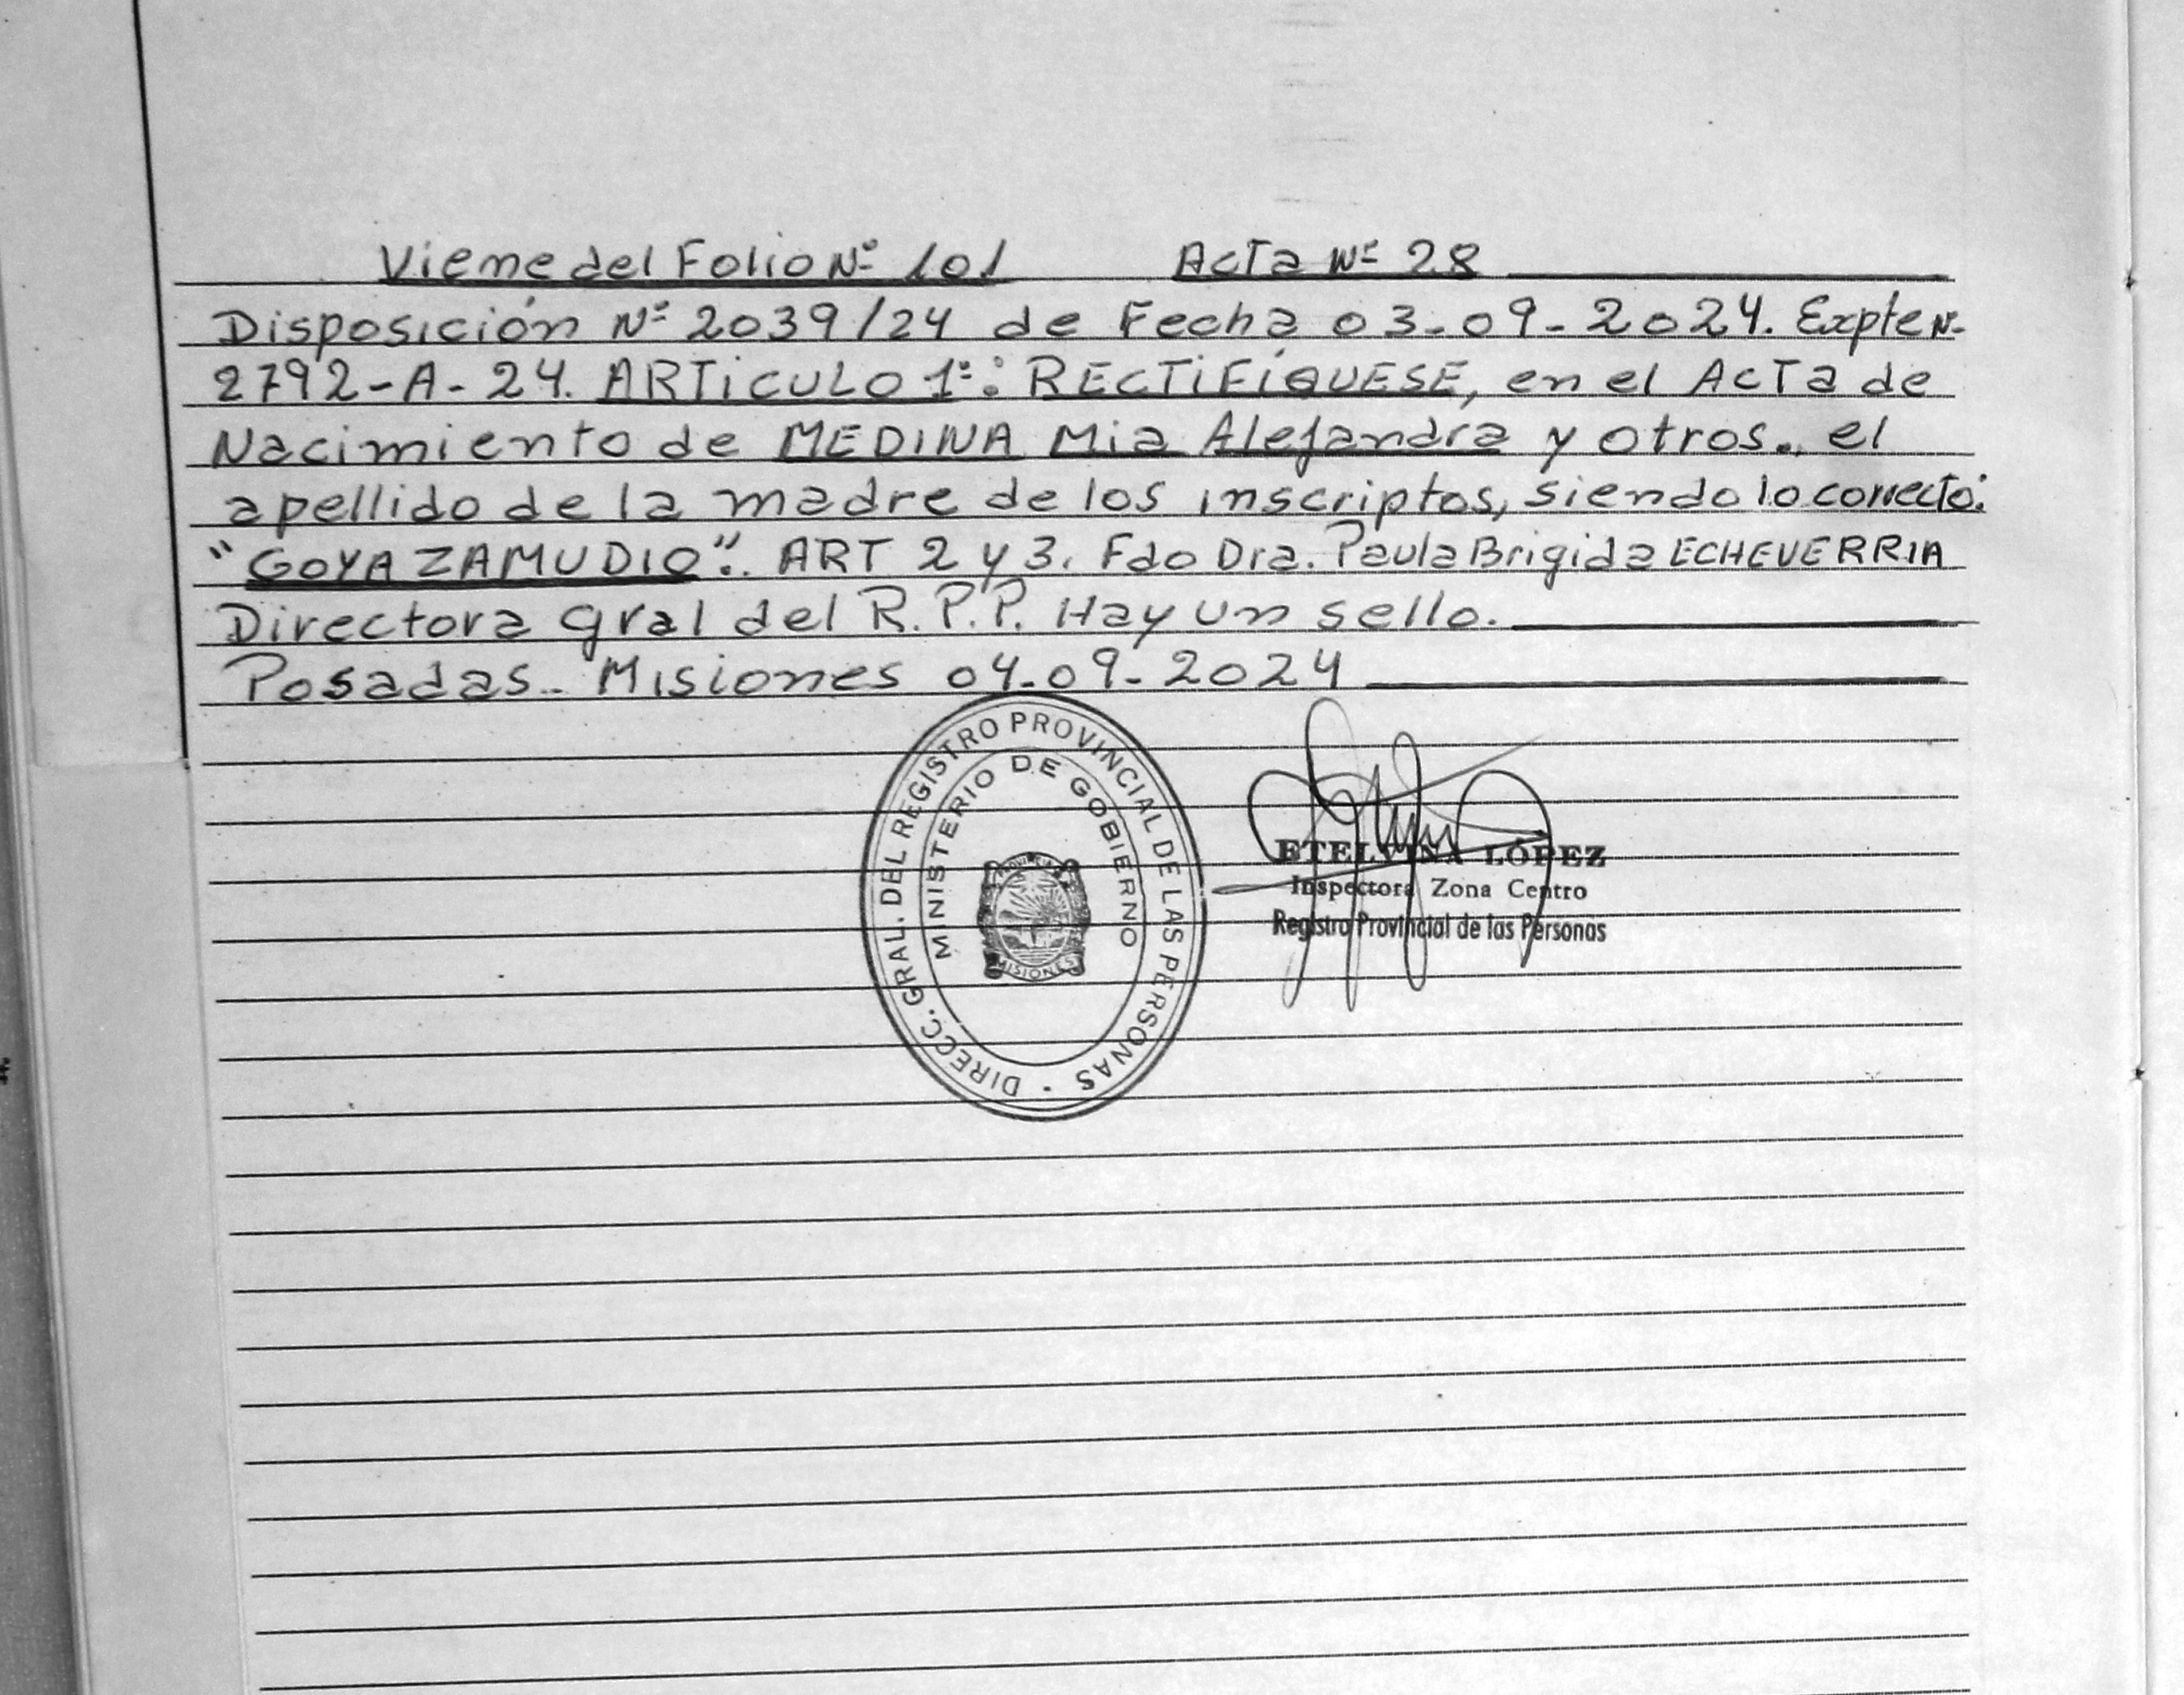 Viene del Folio Nº 101 Acta Nº 28
Disposición Nº 2039/24 de Fecha 03-09-2024. Expte N-
2792-A-24. ARTICULO 1º: RECTIFÍQUESE, en el Acta de
Nacimiento de MEDINA Mia Alejandra y otros., el
apellido de la madre de los inscriptos, siendo lo correcto:
"GOYA ZAMUDIO". ART 2 y 3. Fdo Dra. Paula Brigida ECHEVERRIA
Directora gral del R.P.P. Hay un sello.
Posadas.. Misiones 04-09-2024
DIRECC. GRAL. DEL REGISTRO PROVINCIAL DE LAS PERSONAS
MINISTERIO DE GOBIERNO
MISIONES
ETELVINA LÓPEZ
Inspectora Zona Centro
Registro Provincial de las Personas